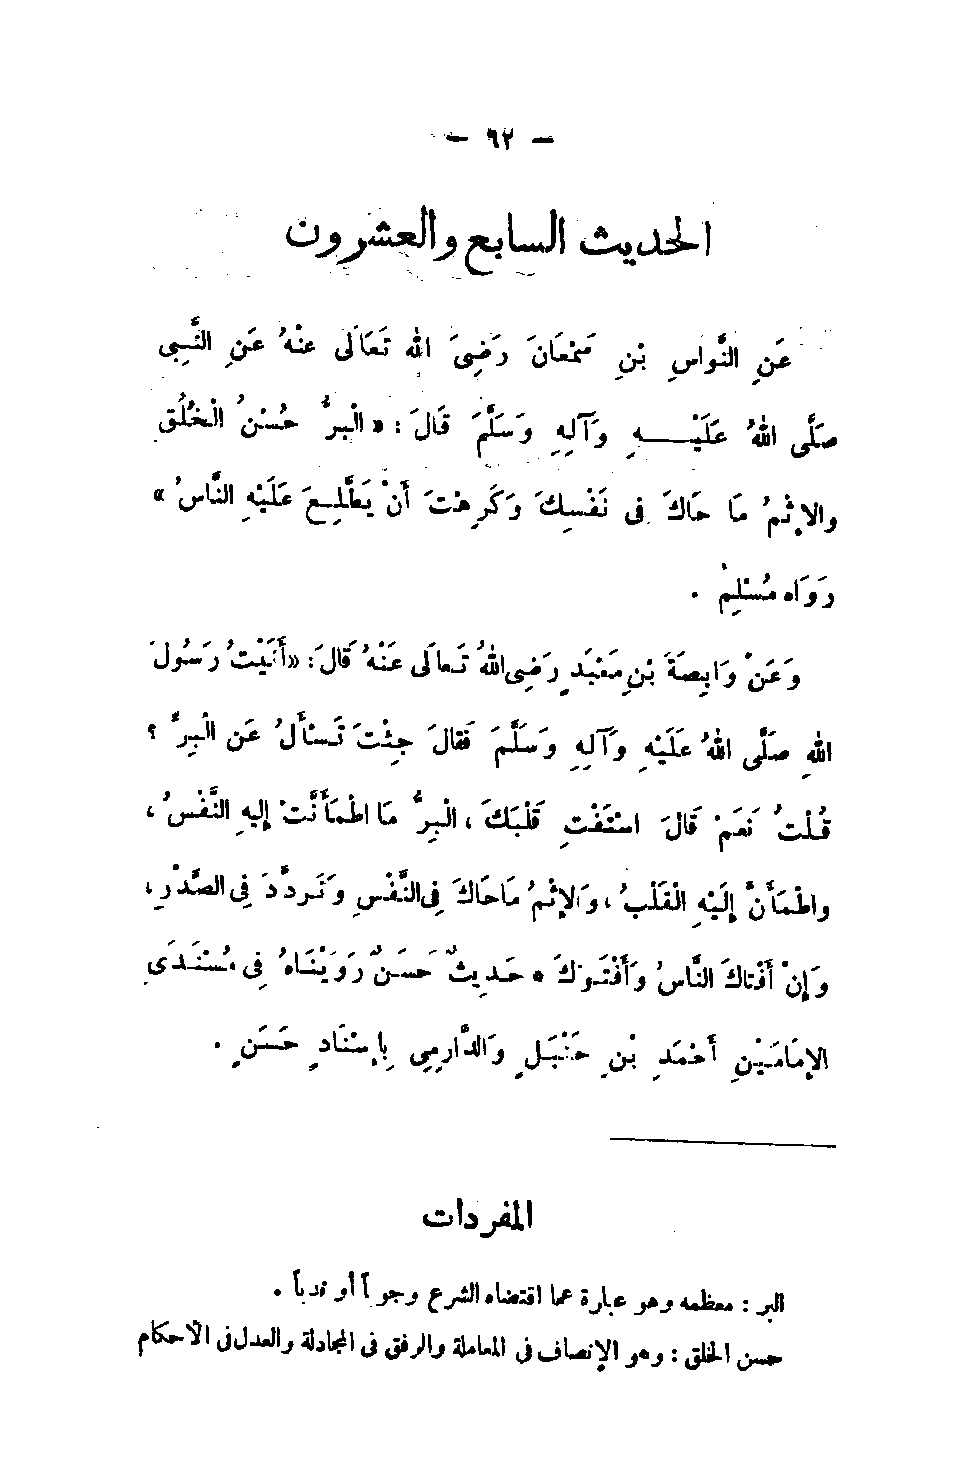 — ٦٢ —
الحديث السابع والعشرون
عَنِ النَّواسِ بْنِ سَمْعَانَ رَضِىَ الله تَعَالَى عنْهُ عَنِ النَّبِىِّ
صَلَّى اللهُ عَلَيْهِ وَآلِهِ وَسَلَّمَ قَالَ: « الْبِرُّ حُسْنُ الْخُلُقِ
والإِثْمُ مَا حَاكَ فى نَفْسِكَ وَكَرِهْتَ أَنْ يَطَّلِعَ عَلَيْهِ النَّاسُ »
رَوَاه مُسْلِمْ .
وَعَنْ وَابِصَةَ بْنِ مَعْبَدٍ رَضِىَ اللهُ تَعالَى عَنْهُ قَالَ: « أَتَيْتُ رَسُولَ
اللهِ صَلَّى اللهُ عَلَيْهِ وَآلِهِ وَسَلَّمَ فَقالَ جِئْتَ تَسْأَلُ عَنِ الْبِرِّ ؟
قُلْتُ نَعَمْ قَالَ اسْتَفْتِ قَلْبَكَ ، الْبِرُّ مَا اطْمَأَنَّتْ إليهِ النَّفْسُ ،
واطْمَأَنَّ إِلَيْهِ الْقَلْبُ ، وَالإِثْمُ مَاحَاكَ فِى النَّفْسِ وَتَردَّدَ فِى الصَّدْرِ ،
وَإِنْ أَفْتاكَ النَّاسُ وَأَفْتَوْكَ » حَدِيثٌ حَسَنٌ رَوَيْنَاهُ فِى مُسْنَدَىِ
الإِمَامَيْنِ أَحْمَدِ بْنِ حَنْبَلٍ وَالدَّارِمِى بِإِسْنَادٍ حَسَنٍ .
المفردات
البر : معظمه وهو عبارة عما اقتضاه الشرع وجوباً أو ندباً .
حسن الخلق : وهو الإنصاف فى المعاملة والرفق فى المجادلة والعدل فى الأحكام